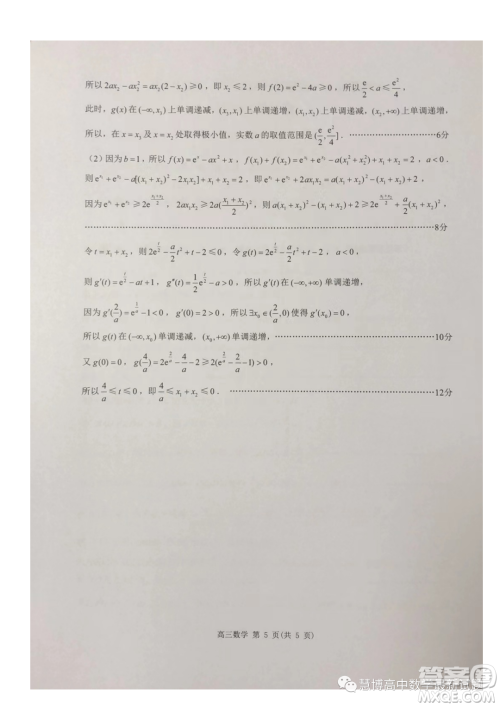 所以 2ax₂ − ax₂² = ax₂(2 − x₂) ≥ 0，即 x₂ ≤ 2，则 f(2) = e² − 4a ≥ 0，所以 e/2 < a ≤ e²/4，
此时，g(x) 在 (−∞, x₁) 上单调递减，(x₁, x₁) 上单调递增，(x₁, x₂) 上单调递减，(x₂, +∞) 上单调递增，
所以，在 x = x₂ 及 x = x₁ 处取得极小值，实数 a 的取值范围是 (e/2, e²/4]．……6分
（2）因为 b = 1，所以 f(x) = eˣ − ax² + x，f(x₁) + f(x₂) = e^{x₁} + e^{x₂} − a(x₁² + x₂²) + x₁ + x₂ = 2，a < 0．
则 e^{x₁} + e^{x₂} − a[(x₁ + x₂)² − 2x₁x₂] + x₁ + x₂ = 2，即 e^{x₁} + e^{x₂} + 2ax₁x₂ = a(x₁ + x₂)² − (x₁ + x₂) + 2，
因为 e^{x₁} + e^{x₂} ≥ 2e^{(x₁+x₂)/2}，2ax₁x₂ ≥ 2a((x₁+x₂)/2)²，则 a(x₁ + x₂)² − (x₁ + x₂) + 2 ≥ 2e^{(x₁+x₂)/2} + a/2 (x₁ + x₂)²，
……8分
令 t = x₁ + x₂，则 2e^{t/2} − a/2 t² + t − 2 ≤ 0，令 g(t) = 2e^{t/2} − a/2 t² + t − 2，a < 0，
则 g′(t) = e^{t/2} − at + 1，g″(t) = 1/2 e^{t/2} − a > 0，所以 g′(t) 在 (−∞, +∞) 单调递增，
因为 g′(2/a) = e^{1/a} − 1 < 0，g′(0) = 2 > 0，所以 ∃x₀ ∈ (2/a, 0) 使得 g′(x₀) = 0，
所以 g(t) 在 (−∞, x₀) 单调递减，(x₀, +∞) 单调递增，……10分
又 g(0) = 0，g(4/a) = 2e^{2/a} − 4/a − 2 ≥ 2(e^{2/a} − 2/a − 1) > 0，
所以 4/a ≤ t ≤ 0，即 4/a ≤ x₁ + x₂ ≤ 0．……12分
高三数学 第 5 页(共 5 页)
慧博高中数学
答案圈
MXQE.COM